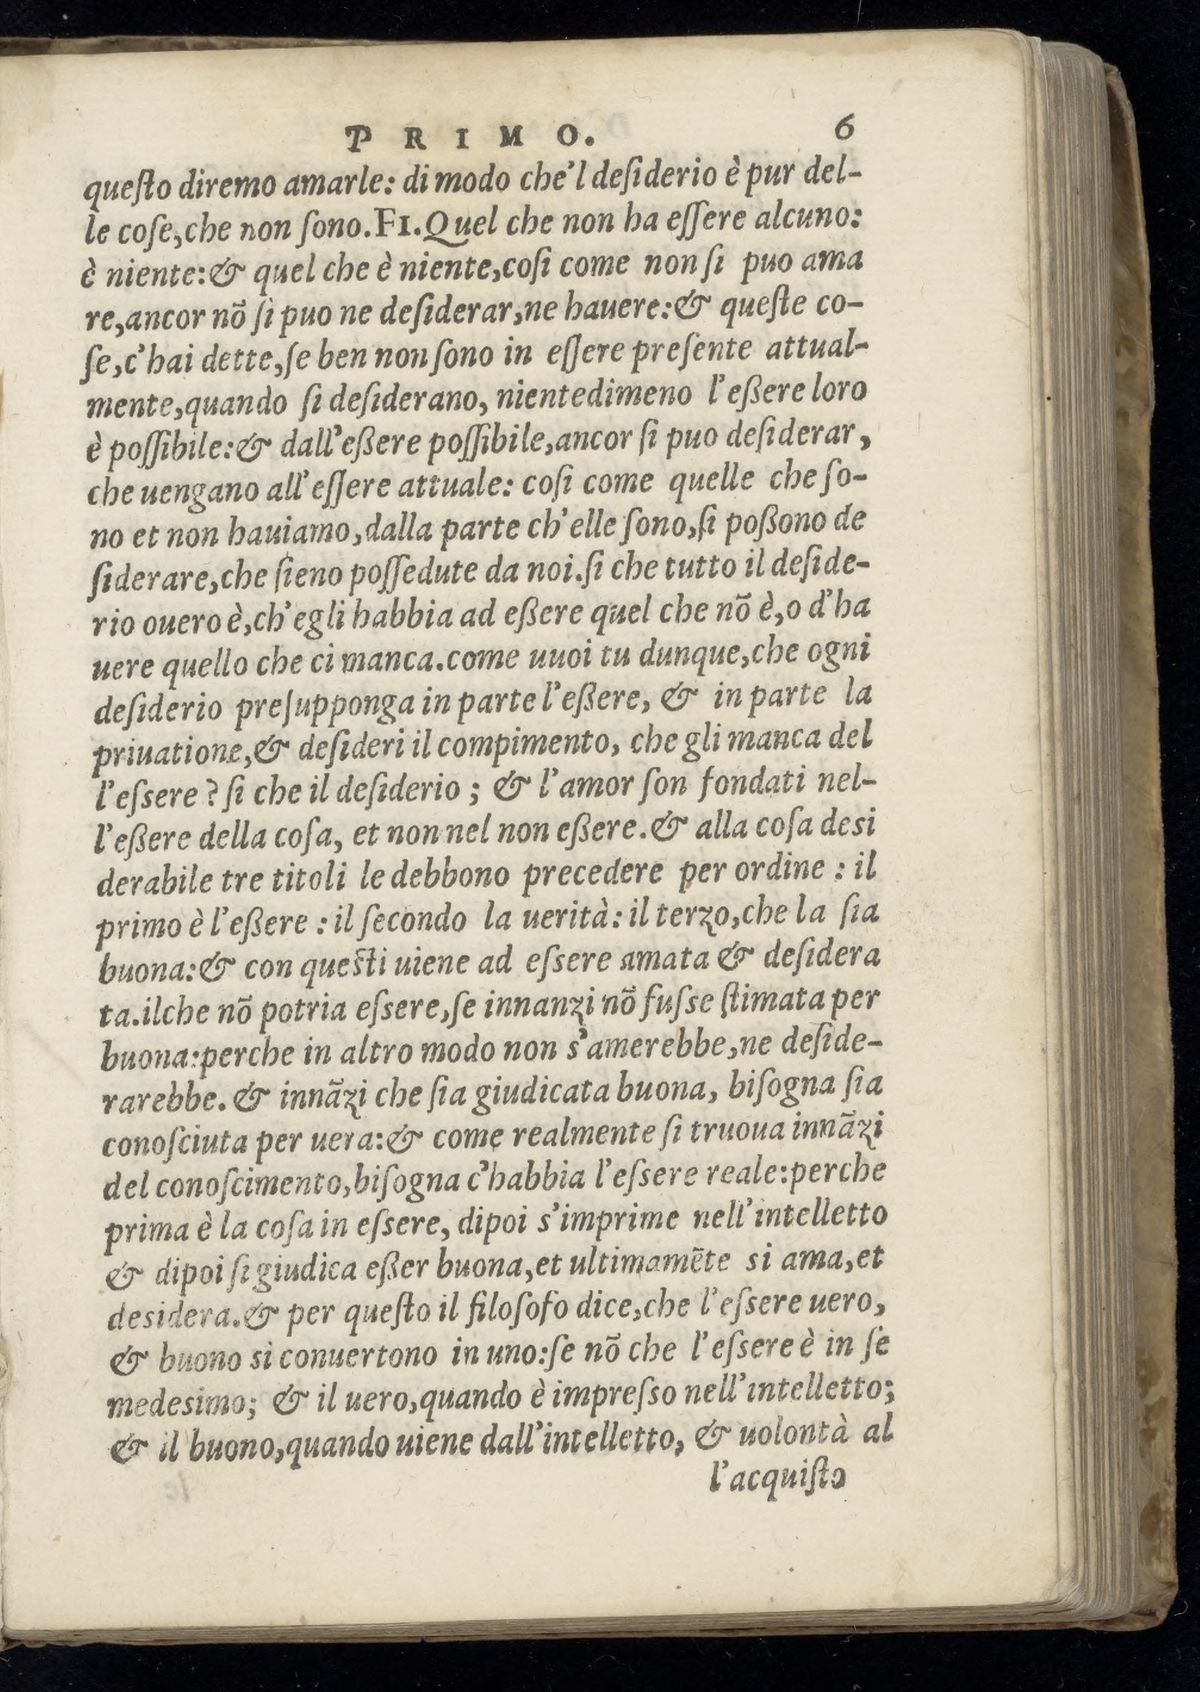 PRIMO. 6
queſto diremo amarle: di modo che'l deſiderio è pur del-
le coſe, che non ſono. FI. Quel che non ha eſſere alcuno:
è niente: & quel che è niente, coſi come non ſi puo ama
re, ancor nō ſi puo ne deſiderar, ne hauere: & queſte co-
ſe, c'hai dette, ſe ben non ſono in eſſere preſente attual-
mente, quando ſi deſiderano, nientedimeno l'eßere loro
è poſſibile: & dall'eßere poſſibile, ancor ſi puo deſiderar,
che uengano all'eſſere attuale: coſi come quelle che ſo-
no et non hauiamo, dalla parte ch'elle ſono, ſi poßono de
ſiderare, che ſieno poſſedute da noi. ſi che tutto il deſide-
rio ouero è, ch'egli habbia ad eßere quel che nō è, o d'ha
uere quello che ci manca. come uuoi tu dunque, che ogni
deſiderio preſupponga in parte l'eßere, & in parte la
priuatione, & deſideri il compimento, che gli manca del
l'eſsere? ſi che il deſiderio; & l'amor ſon fondati nel-
l'eßere della coſa, et non nel non eßere. & alla coſa deſi
derabile tre titoli le debbono precedere per ordine: il
primo è l'eßere: il ſecondo la uerità: il terzo, che la ſia
buona: & con queſti uiene ad eſsere amata & deſidera
ta. ilche nō potria eſsere, ſe innanzi nō fuſse ſtimata per
buona: perche in altro modo non s'amerebbe, ne deſide-
rarebbe. & innāzi che ſia giudicata buona, biſogna ſia
conoſciuta per uera: & come realmente ſi truoua innāzi
del conoſcimento, biſogna c'habbia l'eſsere reale: perche
prima è la coſa in eſsere, dipoi s'imprime nell'intelletto
& dipoi ſi giudica eßer buona, et ultimamēte si ama, et
desidera. & per queſto il filoſofo dice, che l'eſsere uero,
& buono si conuertono in uno: ſe nō che l'eſsere è in ſe
medesimo; & il uero, quando è impreſso nell'intelletto;
& il buono, quando uiene dall'intelletto, & uolontà al
l'acquiſto